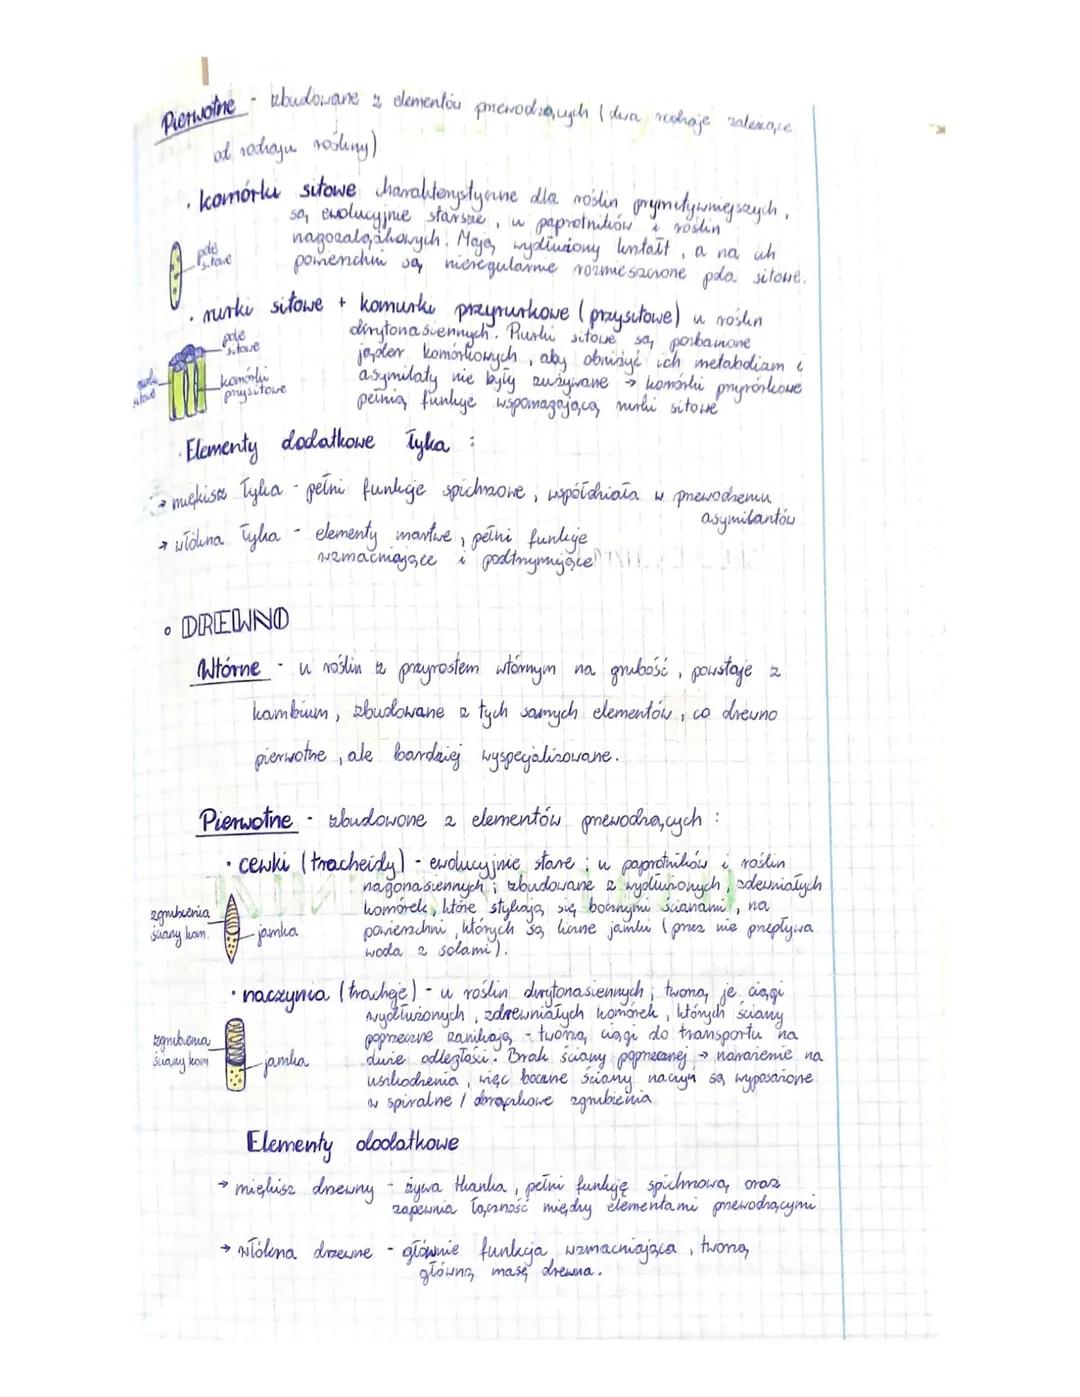 Pierwotne - zbudowane z elementów przewodzących (dwa rodzaje zależące
od rodzaju rośliny)
• komórki sitowe charakterystyczne dla roślin prymitywniejszych,
są ewolucyjnie starsze, u paprotników i roślin
nagozalążkowych. Mają wydłużony kształt, a na ich
powierzchni są nieregularnie rozmieszczone pola sitowe.
pole
sitowe
• rurki sitowe + komurki przyrurkowe (przysitowe) u roślin
okrytonasiennych. Rurki sitowe są pozbawione
jąder komórkowych, aby obniżyć ich metabolizm i
asymilaty nie były zużywane → komórki przyrórkowe
pełnią funkcje wspomagającą rurki sitowe
pole
sitowe
rurki
sitowe
komórki
przysitowe
• Elementy dodatkowe łyka :
→ miękisz łyka - pełni funkcje spichrzowe, współdziała w przewodzeniu
asymilantów
→ włókna łyka - elementy martwe, pełni funkcje
wzmacniające i podtrzymujące
• DREWNO
Wtórne - u roślin z przyrostem wtórnym na grubość, powstaje z
kambium, zbudowane z tych samych elementów, co drewno
pierwotne, ale bardziej wyspecjalizowane.
Pierwotne - zbudowane z elementów przewodzących :
• cewki (tracheidy) - ewolucyjnie stare ; u paprotników i roślin
nagonasiennych ; zbudowane z wydłużonych, zdewniałych
komórek, które stykają się bocznymi ścianami, na
powierzchni, których są liczne jamki (przez nie przepływa
woda z solami).
zgrubienia
ściany kom.
jamka
• naczynia (tracheje) - u roślin okrytonasiennych ; tworzą je ciągi
wydłużonych, zdrewniałych komórek, których ściany
poprzeczne zanikają - tworzą ciągi do transportu na
duże odległości. Brak ściany poprzecznej → narażenie na
uszkodzenia, więc boczne ściany naczyń są wyposażone
w spiralne / obrączkowe zgrubienia
zgrubienia
ściany kom
jamka
Elementy dodatkowe
→ miękisz drzewny - żywa tkanka, pełni funkcję spichrzową oraz
zapewnia łączność między elementami przewodzącymi
→ włókna drzewne - głównie funkcja wzmacniająca, tworzą
główną masę drewna.